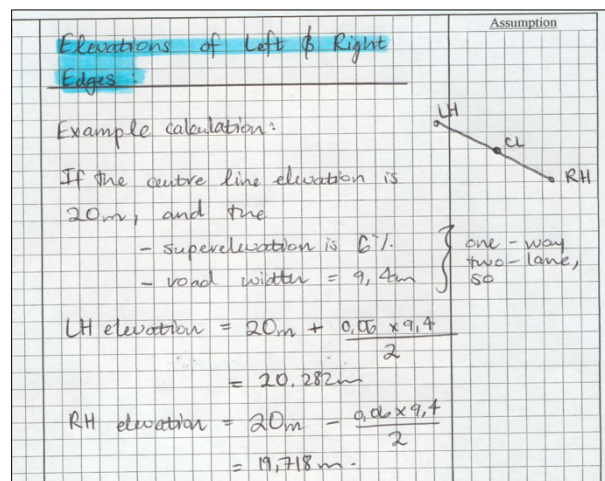 Assumption
Elevations of Left & Right
Edges :
Example calculation:
LH
CL
RH
If the centre line elevation is
20m, and the
- superelevation is 6%.
- road width = 9,4m
one-way
two-lane,
so
LH elevation = 20m + 0,06 x 9,4
2
= 20,282m
RH elevation = 20m - 0,06 x 9,4
2
= 19,718m.